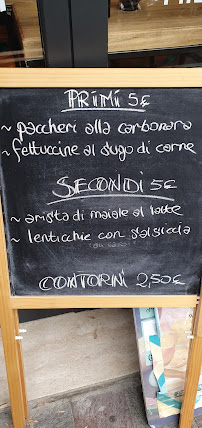 PRIMI 5€
~ paccheri alla carbonara
~ fettuccine al sugo di carne
SECONDI 5€
~ arista di maiale al latte
~ lenticchie con salsiccia
CONTORNI 2,50€